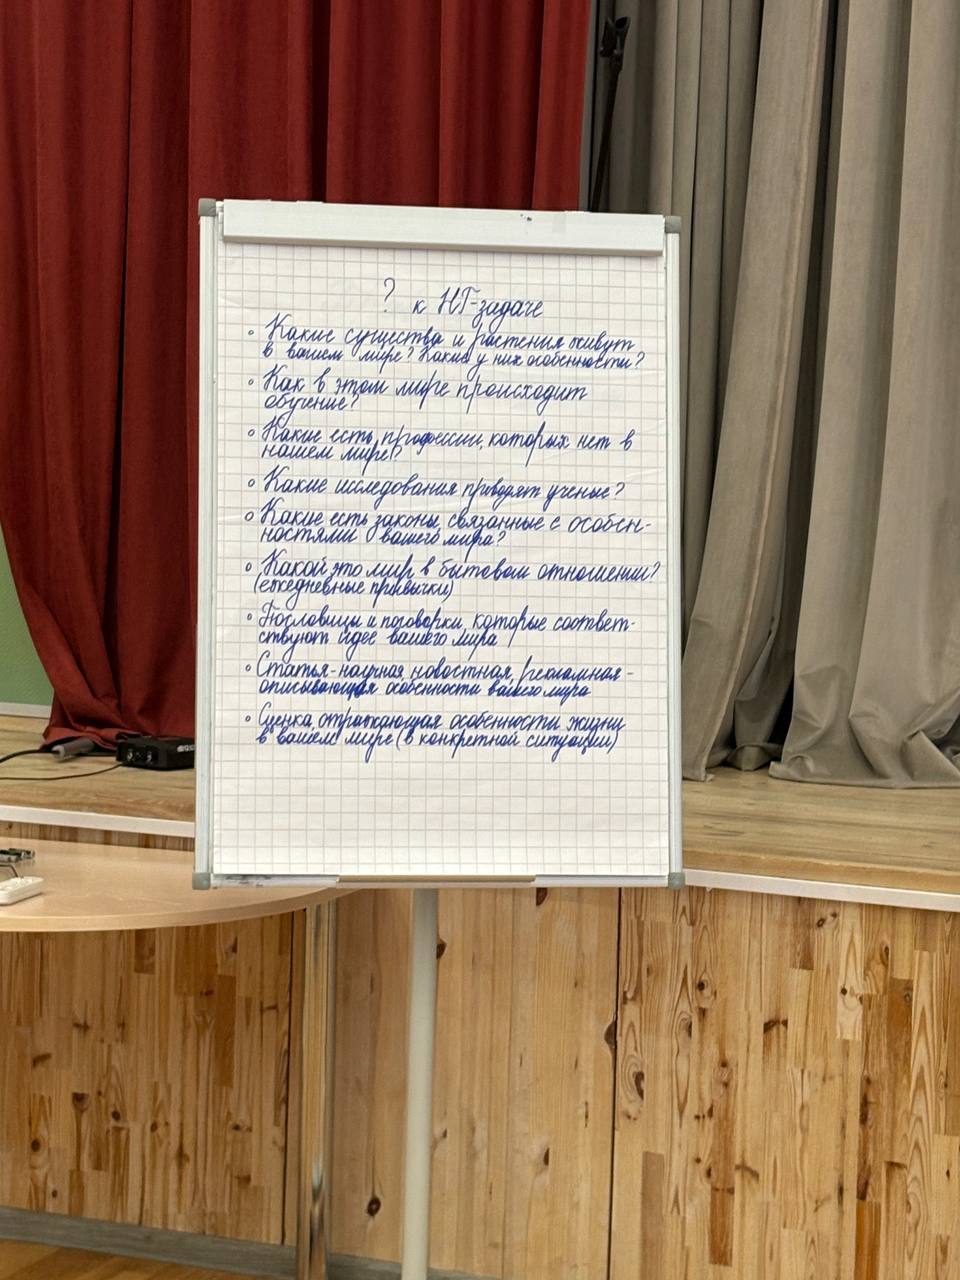 ? к НГ-задаче
◦ Какие существа и растения живут
в вашем мире? Какие у них особенности?
◦ Как в этом мире происходит
обучение?
◦ Какие есть профессии, которых нет в
нашем мире?
◦ Какие исследования приводят ученые?
◦ Какие есть законы, связанные с особен-
ностями вашего мира?
◦ Какой это мир в бытовом отношении?
(ежедневные привычки)
◦ Пословицы и поговорки, которые соответ-
ствуют идее вашего мира
◦ Статья - научная, новостная, рекламная -
описывающая особенности вашего мира
◦ Сценка, отражающая особенности жизни
в вашем мире (в конкретной ситуации)